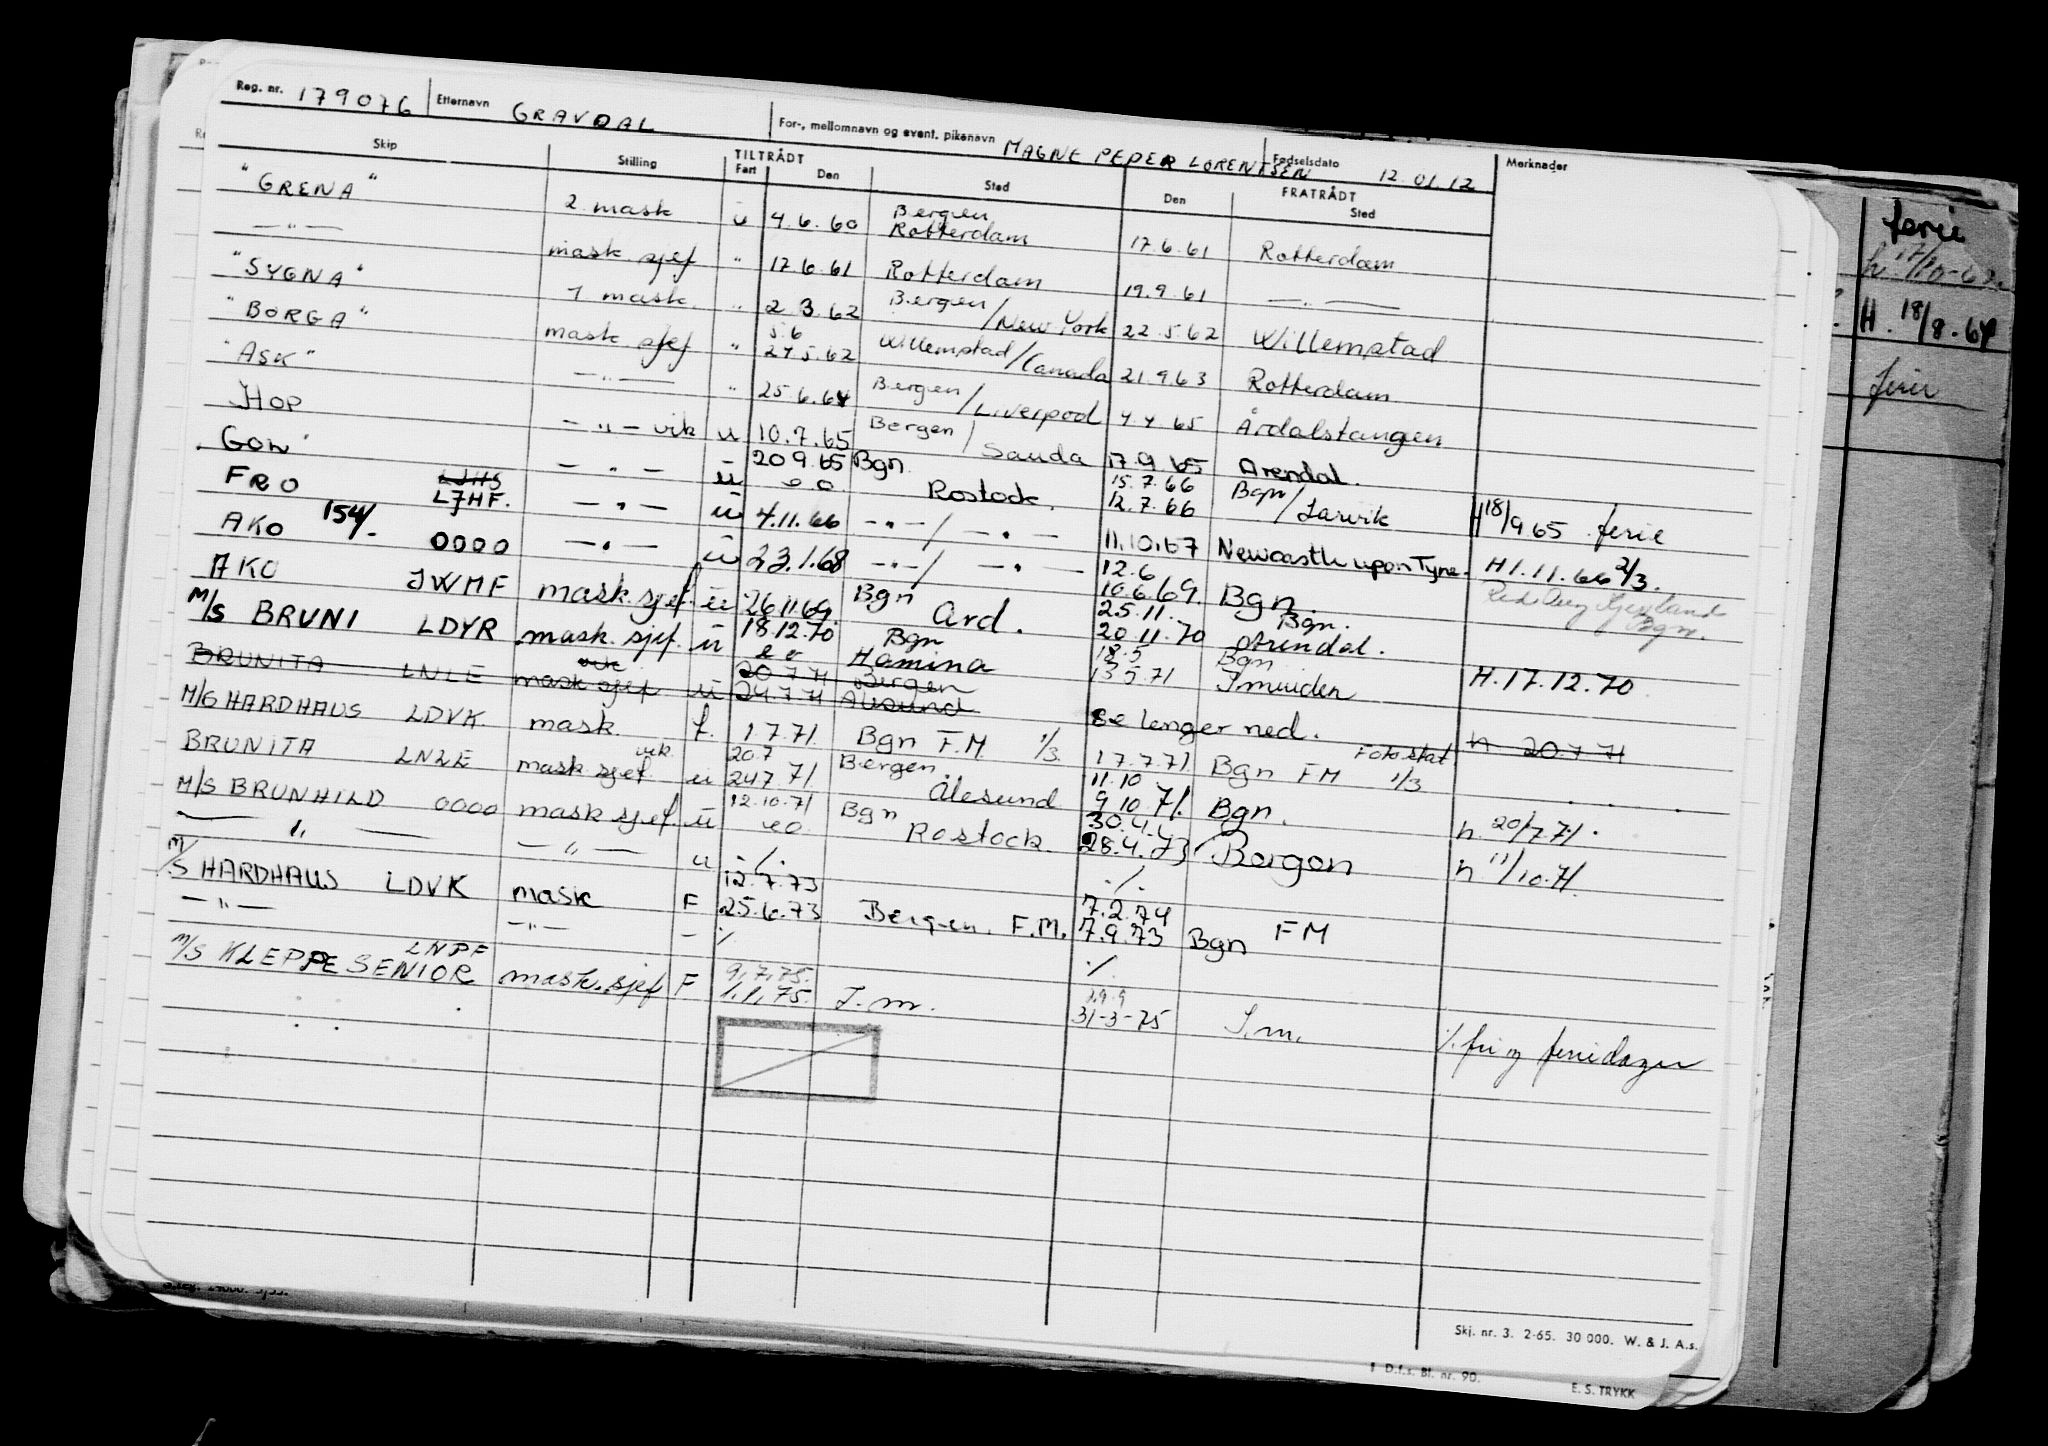 Reg. nr. 179076 Etternavn GRAVDAL For-, mellomnavn og event. pikenavn MAGNE PEDER LORENTSEN Fødselsdato 12.01.12 Merknader
Skip Stilling TILTRÅDT Fart Den Sted FRATRÅDT Den Sted
"GRENA" 2 mask ü 4.6.60 Bergen Rotterdam 17.6.61 Rotterdam
— " — mask sjef " 17.6.61 Rotterdam 19.9.61 — " —
"SYGNA" 1 mask. " 2.3.62 Bergen / New York 22.5.62 Willemstad
"BORGA" mask sjef " 5.6 24.5.62 Willemstad / Canada 21.9.63 Rotterdam
"ASK" — " — " 25.6.64 Bergen / Liverpool 4.4.65 Årdalstangen
HOP — " — vik ü 10.7.65 Bergen / Sauda 17.9.65 Arendal.
GOW — " — ü 20.9.65 eo. Bgn. Rostock. 15.7.66 12.7.66 Bgn / Larvik H 18/9.65 ferie
FRO LJHS L7HF. — " — ü 4.11.66 — " — / — " — 11.10.67 Newcastle upon Tyne. H 1.11.66 2/3.
AKO 154/- 0000 — " — ü 23.1.68 — " — / — " — 12.6 10.6.69. Bgn.
AKO JWMF mask. sjef. ü 26.11.69. Bgn Ard. 25.11. 20.11.70 Bgn. Arendal. Bgn.
M/S BRUNI LDYR mask. sjef. ü 18.12.70 eo Bgn Hamina 18.5 13.5.71 Bgn Ijmuiden H. 17.12.70
BRUNITA LNLE vik mask sjef ü 20.7.71 24.7.71 Bergen Ålesund se lenger ned. h 20.7.71
M/G HARDHAUS LDVK mask. f. 1.7.71. Bgn F.M. 1/3. 17.7.71 Bgn FM Fotostat 1/3
BRUNITA LNLE mask sjef. vik. ü 20.7 24.7 71 Bergen. Ålesund 11.10 9.10.71. Bgn. h. 20/7.71.
M/S BRUNHILD 0000 mask sjef. ü 12.10.71 eo. Bgn Rostock. 30.4. 28.4.73 Bergen h 11/10.71.
— " — — " — ü ./. ./.
M/S HARDHAUS LDVK mask F 12.7.73 25.6.73 Bergen. F.M. 7.2.74 7.9.73 Bgn FM
— " — — " — - ./. ./.
M/S KLEPPE SENIOR LNPF mask. sjef F 9.7.75. 1.1.75. I.m. 29.9 31-3-75 I.m. ./. fri og feriedager
ferie
H. 18/8.64
Skj. nr. 3. 2-65. 30 000. W. & J. A.s.
D.f.s. Bl. nr. 90.
E. S. TRYKK